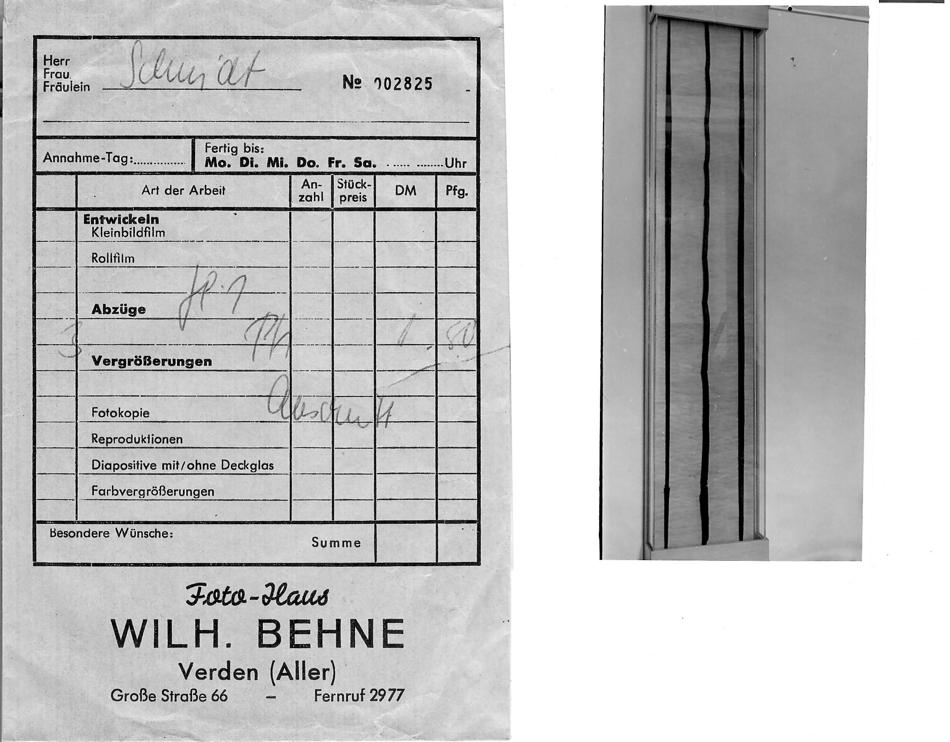 Herr
Frau
Fräulein
Schmidt
No 002825
Annahme-Tag:
Fertig bis:
Mo. Di. Mi. Do. Fr. Sa. Uhr
Art der Arbeit
An-
zahl
Stück-
preis
DM
Pfg.
Entwickeln
Kleinbildfilm
Rollfilm
Abzüge
3
1.50
Vergrößerungen
Fotokopie
Reproduktionen
Diapositive mit/ohne Deckglas
Farbvergrößerungen
Besondere Wünsche:
Summe
Foto-Haus
WILH. BEHNE
Verden (Aller)
Große Straße 66 – Fernruf 2977